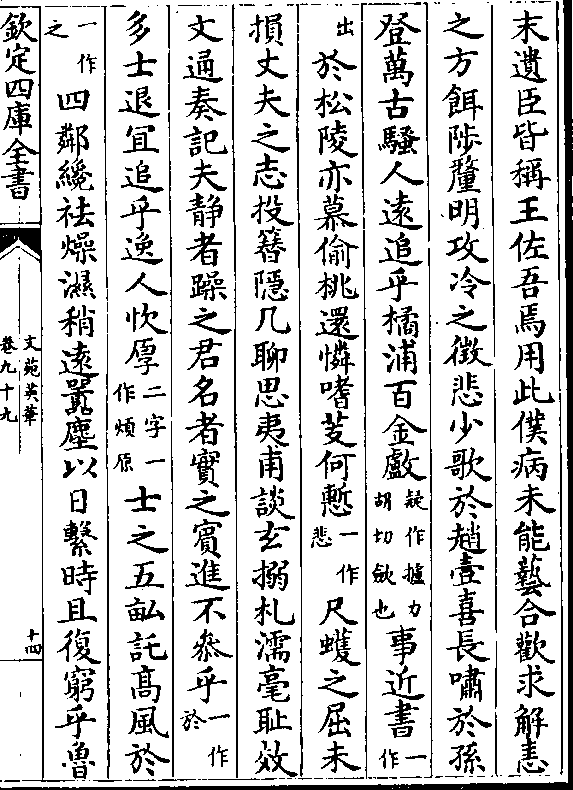 末遺臣皆稱王佐吾焉用此僕病未能藝合歡求解恚
之方餌陟釐明攻冷之徵悲少歌於趙壹喜長嘯於孫
登萬古騷人遠追乎橘浦百金疑作攎力胡切斂也事近書一作
出於松陵亦慕偷桃還憐嗜芰何慙一作悲尺蠖之屈未
損丈夫之志投簪隱几聊思夷甫談玄搦札濡毫耻效
文通奏記夫静者躁之君名者實之賓進不叅乎一作於
多士退宜追乎逸人忺厚二字一作煩原士之五畝託髙風於
一作之四鄰纔祛燥濕稍遠囂塵以日繫時且復窮乎魯
欽定四庫全書
文苑英華
卷九十九
十四